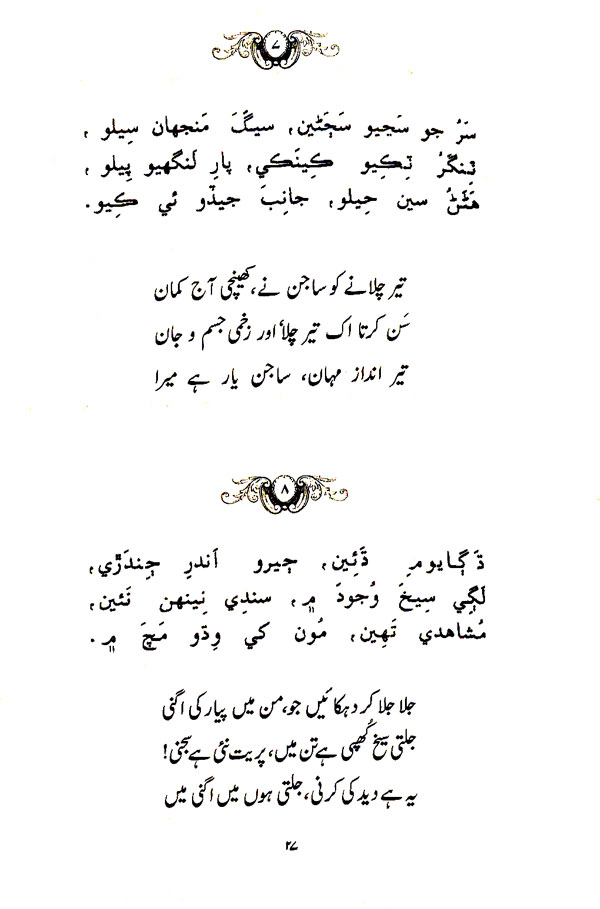 ۷
سَرُ جو سَڄيو سَڄَڻين، سيگَ مَنجھان سِيلو،
ٽِنگَرُ ٽِڪِيو ڪِينَڪي، پارِ لَنگهيو پِيلو،
هَڻَڻُ سين حِيلو، جانِبَ جيڏو ئي ڪِيو.
تیر چلانے کو ساجن نے، کھینچی آج کمان
سَن کرتا اک تیر چلا اور زخمی جسم و جان
تیر انداز مہان، ساجن یار ہے میرا
۸
ڌَڳايومِ ڌَئِين، جيرو اَندرِ جِندَڙي،
لَڳي سِيخَ وُجودَ ۾، سندي نِينهن نَئين،
مُشاهدي تَهِين، مُون کي وِڌو مَچَ ۾.
جلا جلا کر دہکائیں جو، من میں پیار کی اگنی
جلتی سیخ کُھپی ہے تن میں، پریت نئی ہے سجنی!
یہ ہے دید کی کرنی، جلتی ہوں میں اگنی میں
۲۷